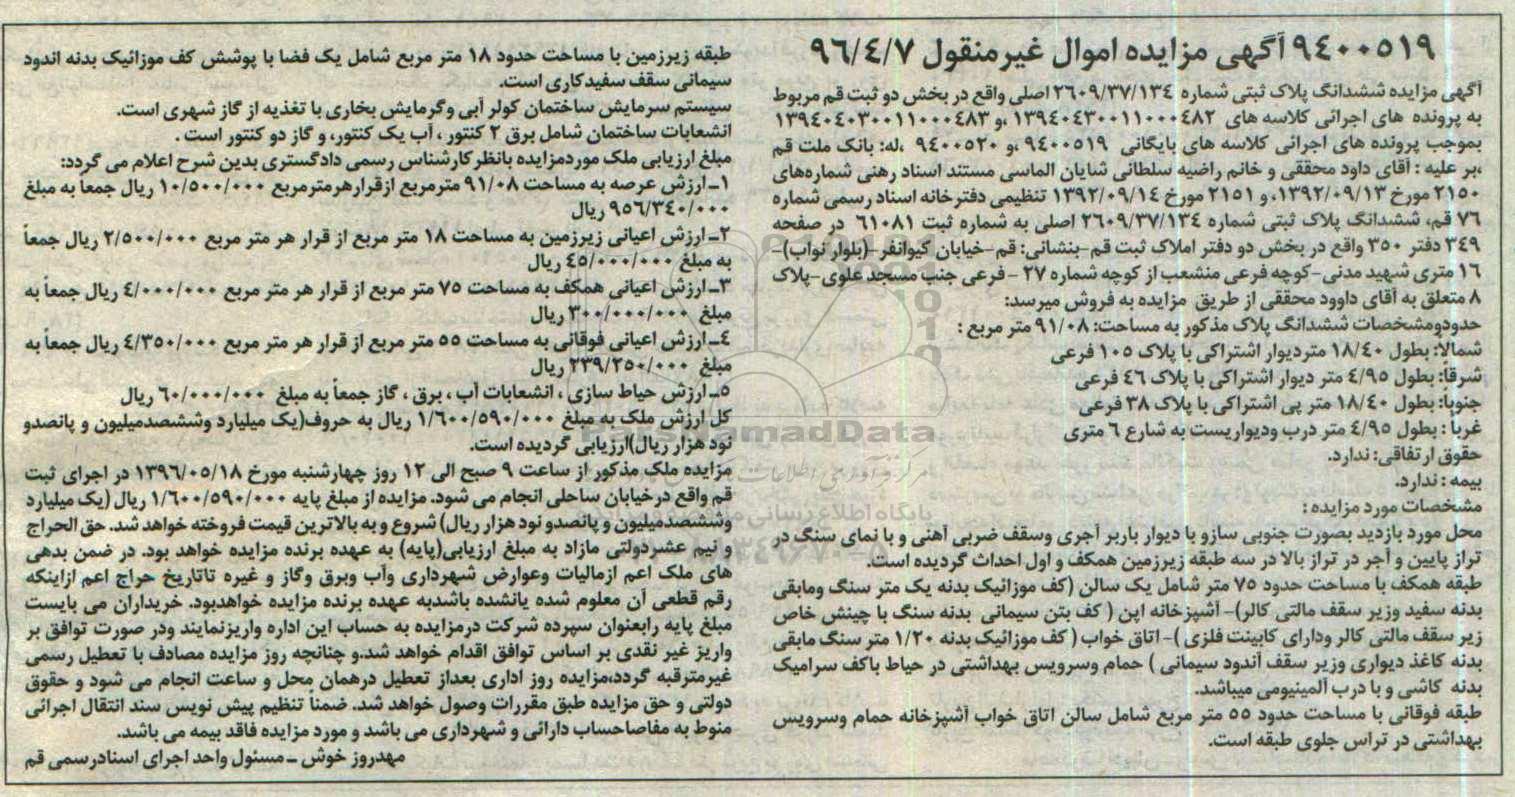 ۹۴۰۰۵۱۹ آگهی مزایده اموال غیرمنقول ۹۶/۴/۷
آگهی مزایده ششدانگ پلاک ثبتی شماره ۲۶۰۹/۳۷/۱۳۴ اصلی واقع در بخش دو ثبت قم مربوط
به پرونده های اجرائی کلاسه های ۱۳۹۴۰۴۳۰۰۱۱۰۰۰۴۸۲ ،و ۱۳۹۴۰۴۰۳۰۰۱۱۰۰۰۴۸۳
بموجب پرونده های اجرائی کلاسه های بایگانی ۹۴۰۰۵۱۹ ،و ۹۴۰۰۵۲۰ ،له: بانک ملت قم
،بر علیه : آقای داود محققی و خانم راضیه سلطانی شایان الماسی مستند اسناد رهنی شماره‌های
۲۱۵۰ مورخ ۱۳۹۲/۰۹/۱۳،و ۲۱۵۱ مورخ ۱۳۹۲/۰۹/۱۴ تنظیمی دفترخانه اسناد رسمی شماره
۷۶ قم، ششدانگ پلاک ثبتی شماره ۲۶۰۹/۳۷/۱۳۴ اصلی به شماره ثبت ۶۱۰۸۱ در صفحه
۳۴۹ دفتر ۳۵۰ واقع در بخش دو دفتر املاک ثبت قم-بنشانی: قم-خیابان کیوانفر-(بلوار نواب)-
۱۶ متری شهید مدنی-کوچه فرعی منشعب از کوچه شماره ۲۷ - فرعی جنب مسجد علوی-پلاک
۸ متعلق به آقای داوود محققی از طریق مزایده به فروش میرسد:
حدودومشخصات ششدانگ پلاک مذکور به مساحت: ۹۱/۰۸ متر مربع :
شمالا: بطول ۱۸/۴۰ متردیوار اشتراکی با پلاک ۱۰۵ فرعی
شرقاً: بطول ۴/۹۵ متر دیوار اشتراکی با پلاک ۴۶ فرعی
جنوباً: بطول ۱۸/۴۰ متر پی اشتراکی با پلاک ۳۸ فرعی
غرباً : بطول ۴/۹۵ متر درب ودیواریست به شارع ۶ متری
حقوق ارتفاقی: ندارد.
بیمه : ندارد.
مشخصات مورد مزایده :
محل مورد بازدید بصورت جنوبی سازو با دیوار باربر آجری وسقف ضربی آهنی و با نمای سنگ در
تراز پایین و آجر در تراز بالا در سه طبقه زیرزمین همکف و اول احداث گردیده است.
طبقه همکف با مساحت حدود ۷۵ متر شامل یک سالن (کف موزائیک بدنه یک متر سنگ ومابقی
بدنه سفید وزیر سقف مالتی کالر)- آشپزخانه اپن ( کف بتن سیمانی بدنه سنگ با چینش خاص
زیر سقف مالتی کالر ودارای کابینت فلزی )- اتاق خواب ( کف موزائیک بدنه ۱/۲۰ متر سنگ مابقی
بدنه کاغذ دیواری وزیر سقف آندود سیمانی ) حمام وسرویس بهداشتی در حیاط باکف سرامیک
بدنه کاشی و با درب آلمینیومی میباشد.
طبقه فوقانی با مساحت حدود ۵۵ متر مربع شامل سالن اتاق خواب آشپزخانه حمام وسرویس
بهداشتی در تراس جلوی طبقه است.
طبقه زیرزمین با مساحت حدود ۱۸ متر مربع شامل یک فضا با پوشش کف موزائیک بدنه اندود
سیمانی سقف سفیدکاری است.
سیستم سرمایش ساختمان کولر آبی وگرمایش بخاری با تغذیه از گاز شهری است.
انشعابات ساختمان شامل برق ۲ کنتور ، آب یک کنتور، و گاز دو کنتور است .
مبلغ ارزیابی ملک موردمزایده بانظرکارشناس رسمی دادگستری بدین شرح اعلام می گردد:
۱ـ ارزش عرصه به مساحت ۹۱/۰۸ مترمربع ازقرارهرمترمربع ۱۰/۵۰۰/۰۰۰ ریال جمعاً به مبلغ
۹۵۶/۳۴۰/۰۰۰ ریال
۲ـ ارزش اعیانی زیرزمین به مساحت ۱۸ متر مربع از قرار هر متر مربع ۲/۵۰۰/۰۰۰ ریال جمعاً
به مبلغ ۴۵/۰۰۰/۰۰۰ ریال
۳ـ ارزش اعیانی همکف به مساحت ۷۵ متر مربع از قرار هر متر مربع ۴/۰۰۰/۰۰۰ ریال جمعاً به
مبلغ ۳۰۰/۰۰۰/۰۰۰ ریال
۴ـ ارزش اعیانی فوقانی به مساحت ۵۵ متر مربع از قرار هر متر مربع ۴/۳۵۰/۰۰۰ ریال جمعاً به
مبلغ ۲۳۹/۲۵۰/۰۰۰ ریال
۵ـ ارزش حیاط سازی ، انشعابات آب ، برق ، گاز جمعاً به مبلغ ۶۰/۰۰۰/۰۰۰ ریال
کل ارزش ملک به مبلغ ۱/۶۰۰/۵۹۰/۰۰۰ ریال به حروف(یک میلیارد وششصدمیلیون و پانصدو
نود هزار ریال)ارزیابی گردیده است.
مزایده ملک مذکور از ساعت ۹ صبح الی ۱۲ روز چهارشنبه مورخ ۱۳۹۶/۰۵/۱۸ در اجرای ثبت
قم واقع درخیابان ساحلی انجام می شود. مزایده از مبلغ پایه ۱/۶۰۰/۵۹۰/۰۰۰ ریال (یک میلیارد
وششصدمیلیون و پانصدو نود هزار ریال) شروع و به بالاترین قیمت فروخته خواهد شد. حق الحراج
و نیم عشردولتی مازاد به مبلغ ارزیابی(پایه) به عهده برنده مزایده خواهد بود. در ضمن بدهی
های ملک اعم ازمالیات وعوارض شهرداری وآب وبرق وگاز و غیره تاتاریخ حراج اعم ازاینکه
رقم قطعی آن معلوم شده یانشده باشدبه عهده برنده مزایده خواهدبود. خریداران می بایست
مبلغ پایه رابعنوان سپرده شرکت درمزایده به حساب این اداره واریزنمایند ودر صورت توافق بر
واریز غیر نقدی بر اساس توافق اقدام خواهد شد.و چنانچه روز مزایده مصادف با تعطیل رسمی
غیرمترقبه گردد،مزایده روز اداری بعداز تعطیل درهمان محل و ساعت انجام می شود و حقوق
دولتی و حق مزایده طبق مقررات وصول خواهد شد. ضمناً تنظیم پیش نویس سند انتقال اجرائی
منوط به مفاصاحساب دارائی و شهرداری می باشد و مورد مزایده فاقد بیمه می باشد.
مهدروز خوش ـ مسئول واحد اجرای اسنادرسمی قم